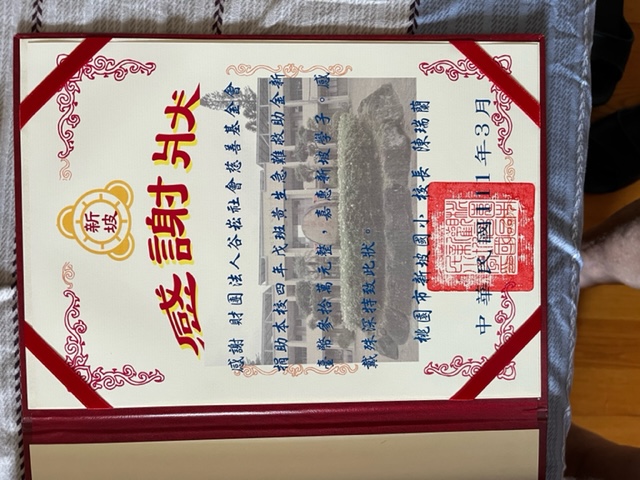 新坡
感謝狀
感謝 財團法人谷崧社會慈善基金會
捐助本校四年戊班黃生急難救助金新
臺幣參拾萬元整，嘉惠新坡學子。感
戴殊深特致此狀。
桃園市新坡國小 校長 陳瑞蘭
中華民國111年3月